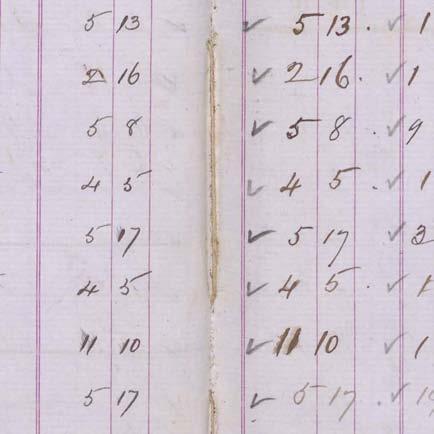 5 13 ✓ 5 13 . ✓ 1
2 16 ✓ 2 16 . ✓ 1
5 8 ✓ 5 8 . ✓ 9
4 5 ✓ 4 5 . ✓ 1
5 17 ✓ 5 17 ✓ 3
4 5 ✓ 4 5 . ✓ 1
11 10 ✓ 11 10 . ✓ 1
5 17 ✓ 5 17 . ✓ 1